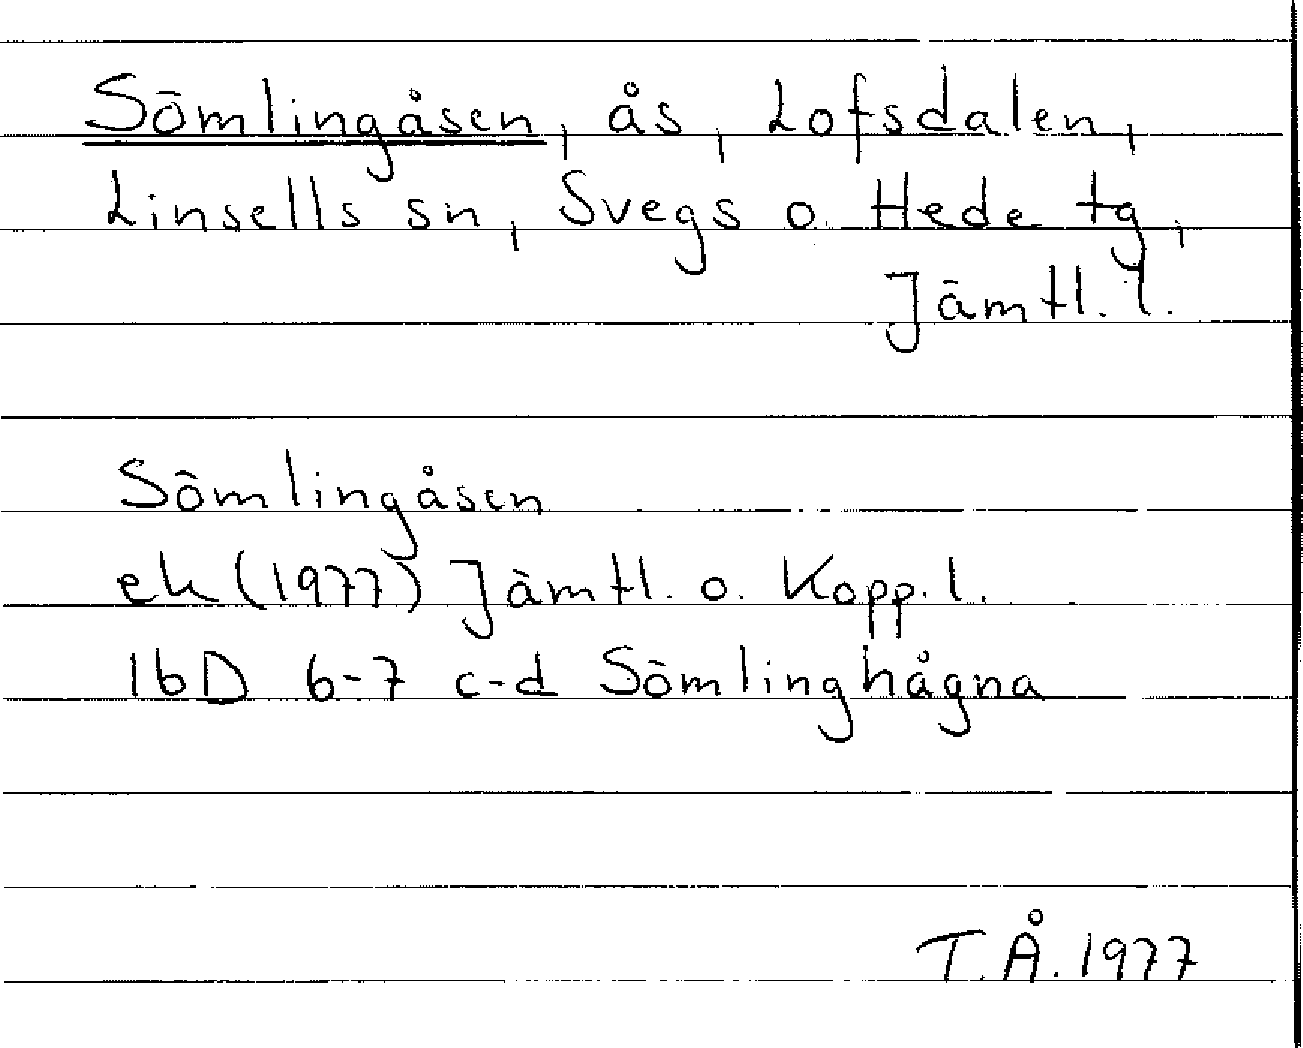 Sömlingåsen, ås, Lofsdalen,
Linsells sn, Svegs o. Hede tg,
Jämtl. l.
Sömlingåsen
ek (1977) Jämtl. o. Kopp. l.
16D 6-7 c-d Sömlinghågna
T.Å. 1977